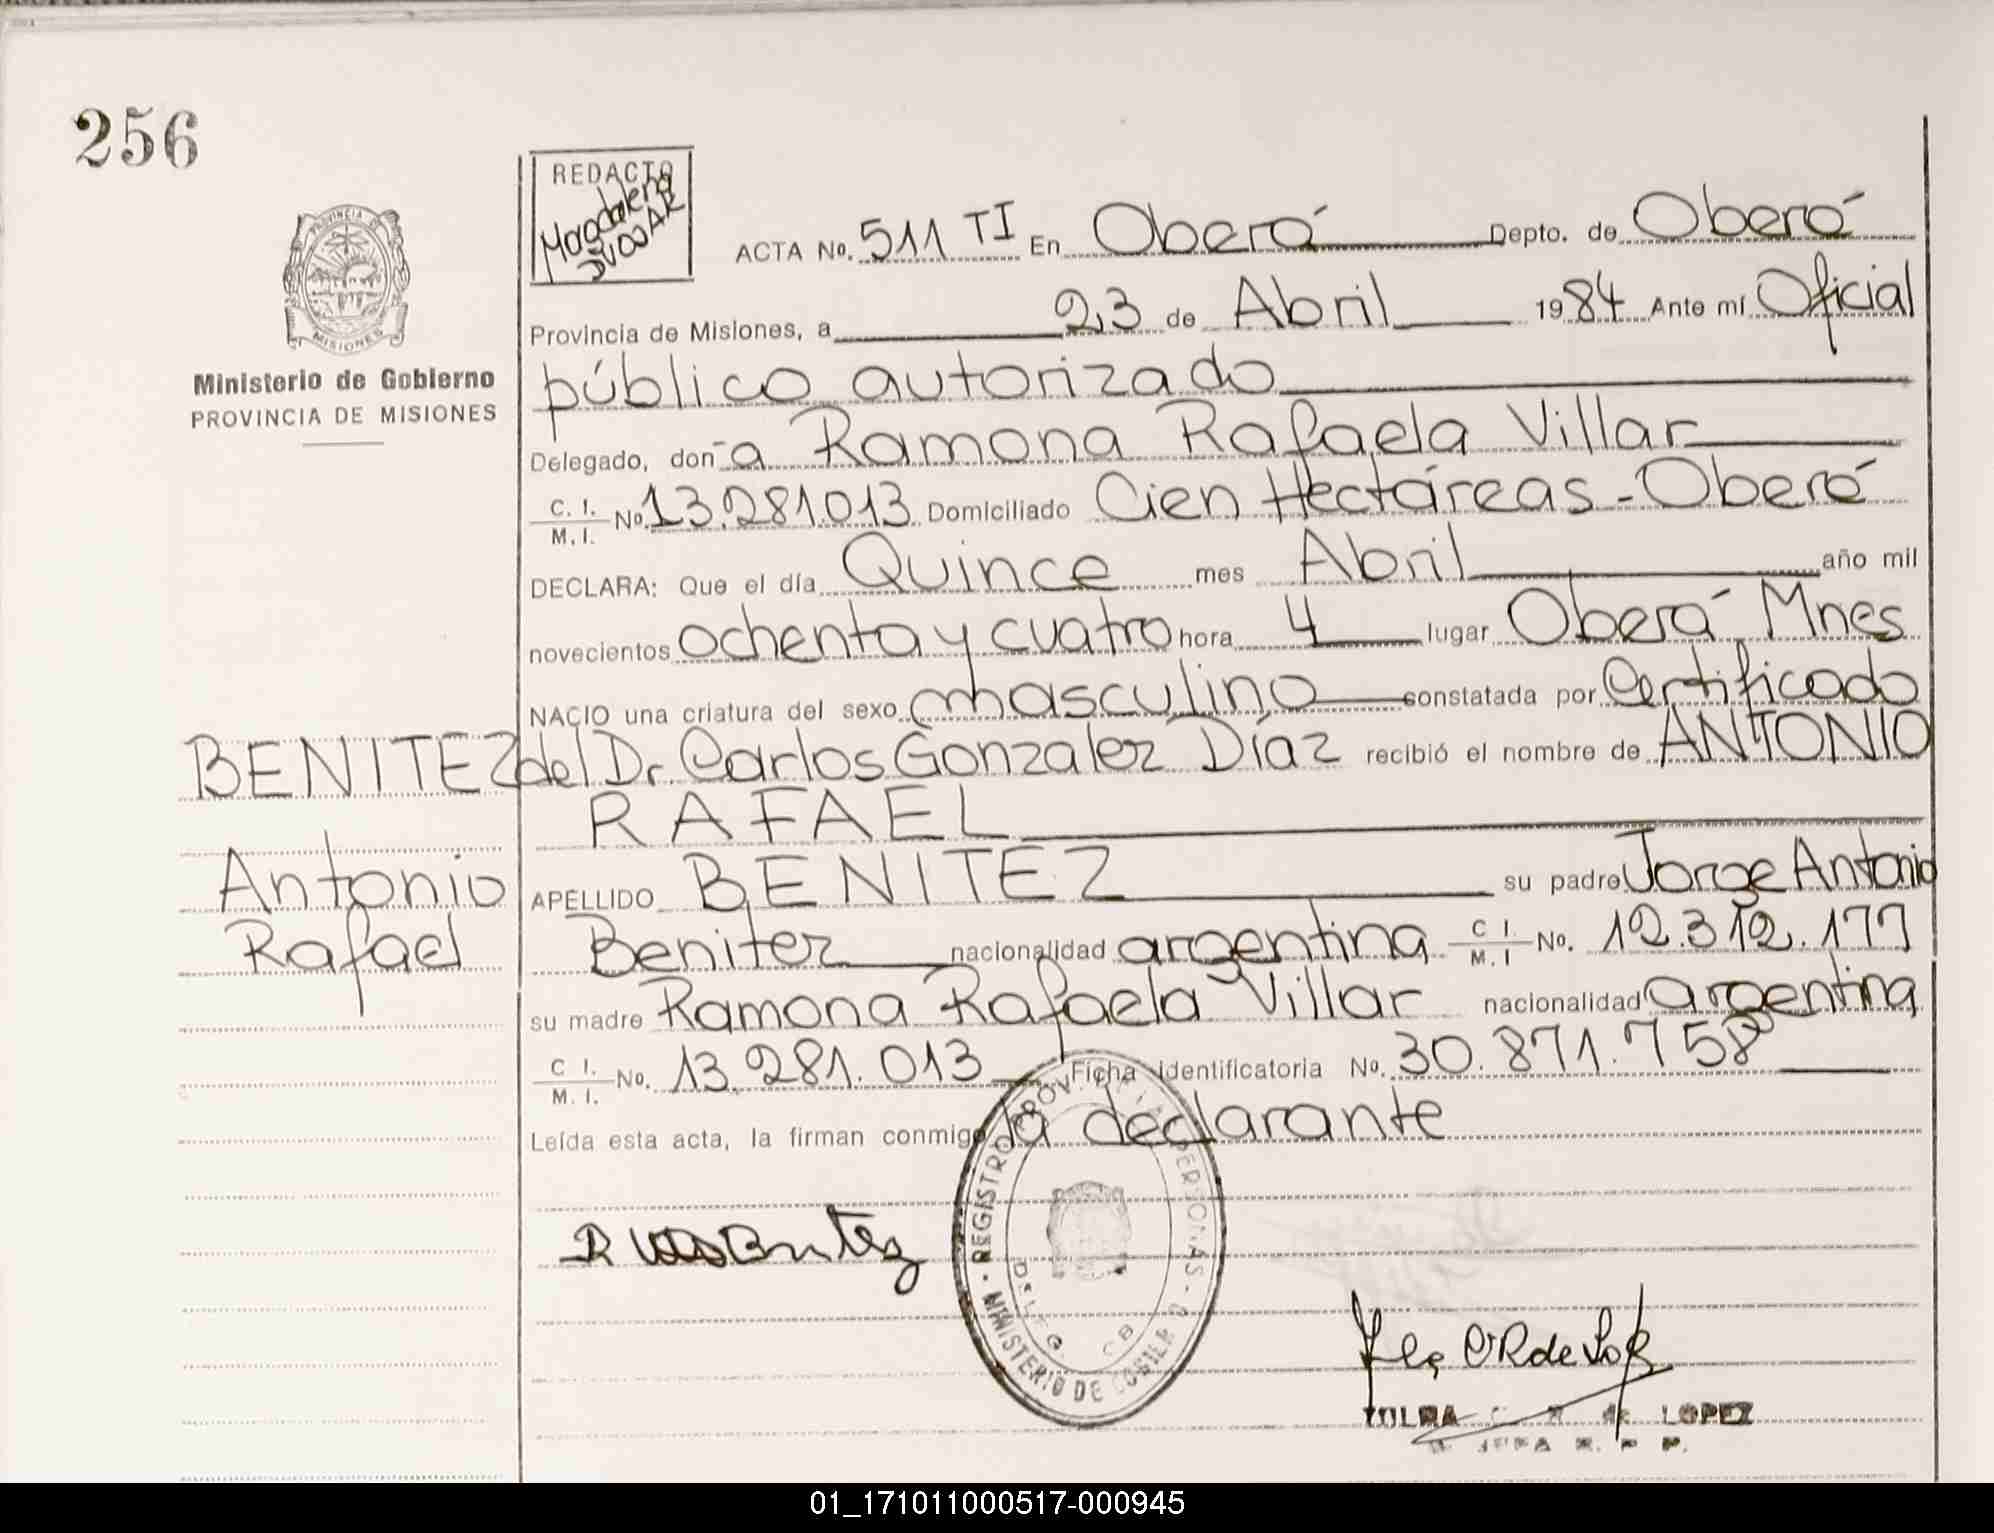 256
REDACTO
Magdalena
ACTA No. 511 TI En Oberá Depto. de Oberá
Provincia de Misiones, a 23 de Abril 1984 Ante mí Oficial
PROVINCIA DE
MISIONES
Ministerio de Gobierno
PROVINCIA DE MISIONES
público autorizado
Delegado, don a Ramona Rafaela Villar
C. I. / M. I. No. 13.281.013 Domiciliado Cien Hectáreas - Oberá
DECLARA: Que el día Quince mes Abril año mil
novecientos ochenta y cuatro hora 4 lugar Oberá Mnes
NACIO una criatura del sexo masculino constatada por Certificado
del Dr. Carlos Gonzalez Díaz recibió el nombre de ANTONIO
RAFAEL
BENITEZ
Antonio
Rafael
APELLIDO BENITEZ su padre Jorge Antonio
Benitez nacionalidad argentina C I. / M. I No. 12.312.177
su madre Ramona Rafaela Villar nacionalidad argentina
C I. / M. I. No. 13.281.013 Ficha identificatoria No. 30.871.758
Leída esta acta, la firman conmigo la declarante
REGISTRO PROVINCIAL PERSONAS
MINISTERIO DE
DELEG.
LOPEZ
01_171011000517-000945